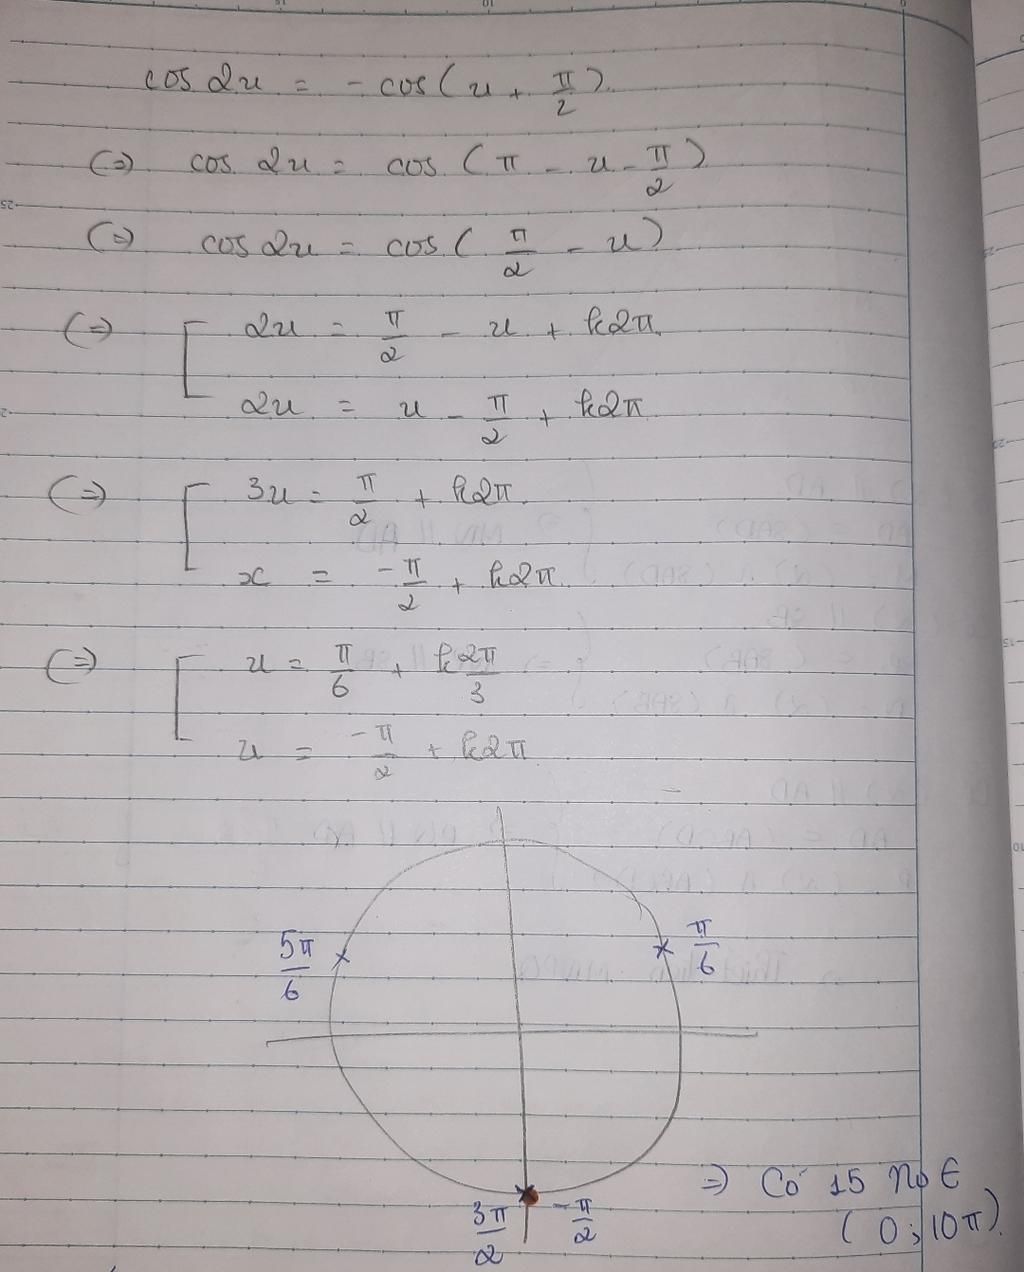 cos 2x = - cos(x + π/2).
(=) cos 2x = cos (π - x - π/2)
(=) cos 2x = cos (π/2 - x)
(=) [ 2x = π/2 - x + k2π.
2x = x - π/2 + k2π
(=) [ 3x = π/2 + k2π.
x = -π/2 + k2π.
(=) [ x = π/6 + k2π/3
x = -π/2 + k2π.
5π/6 π/6
3π/2 -π/2
=) Có 15 no ∈
(0; 10π).